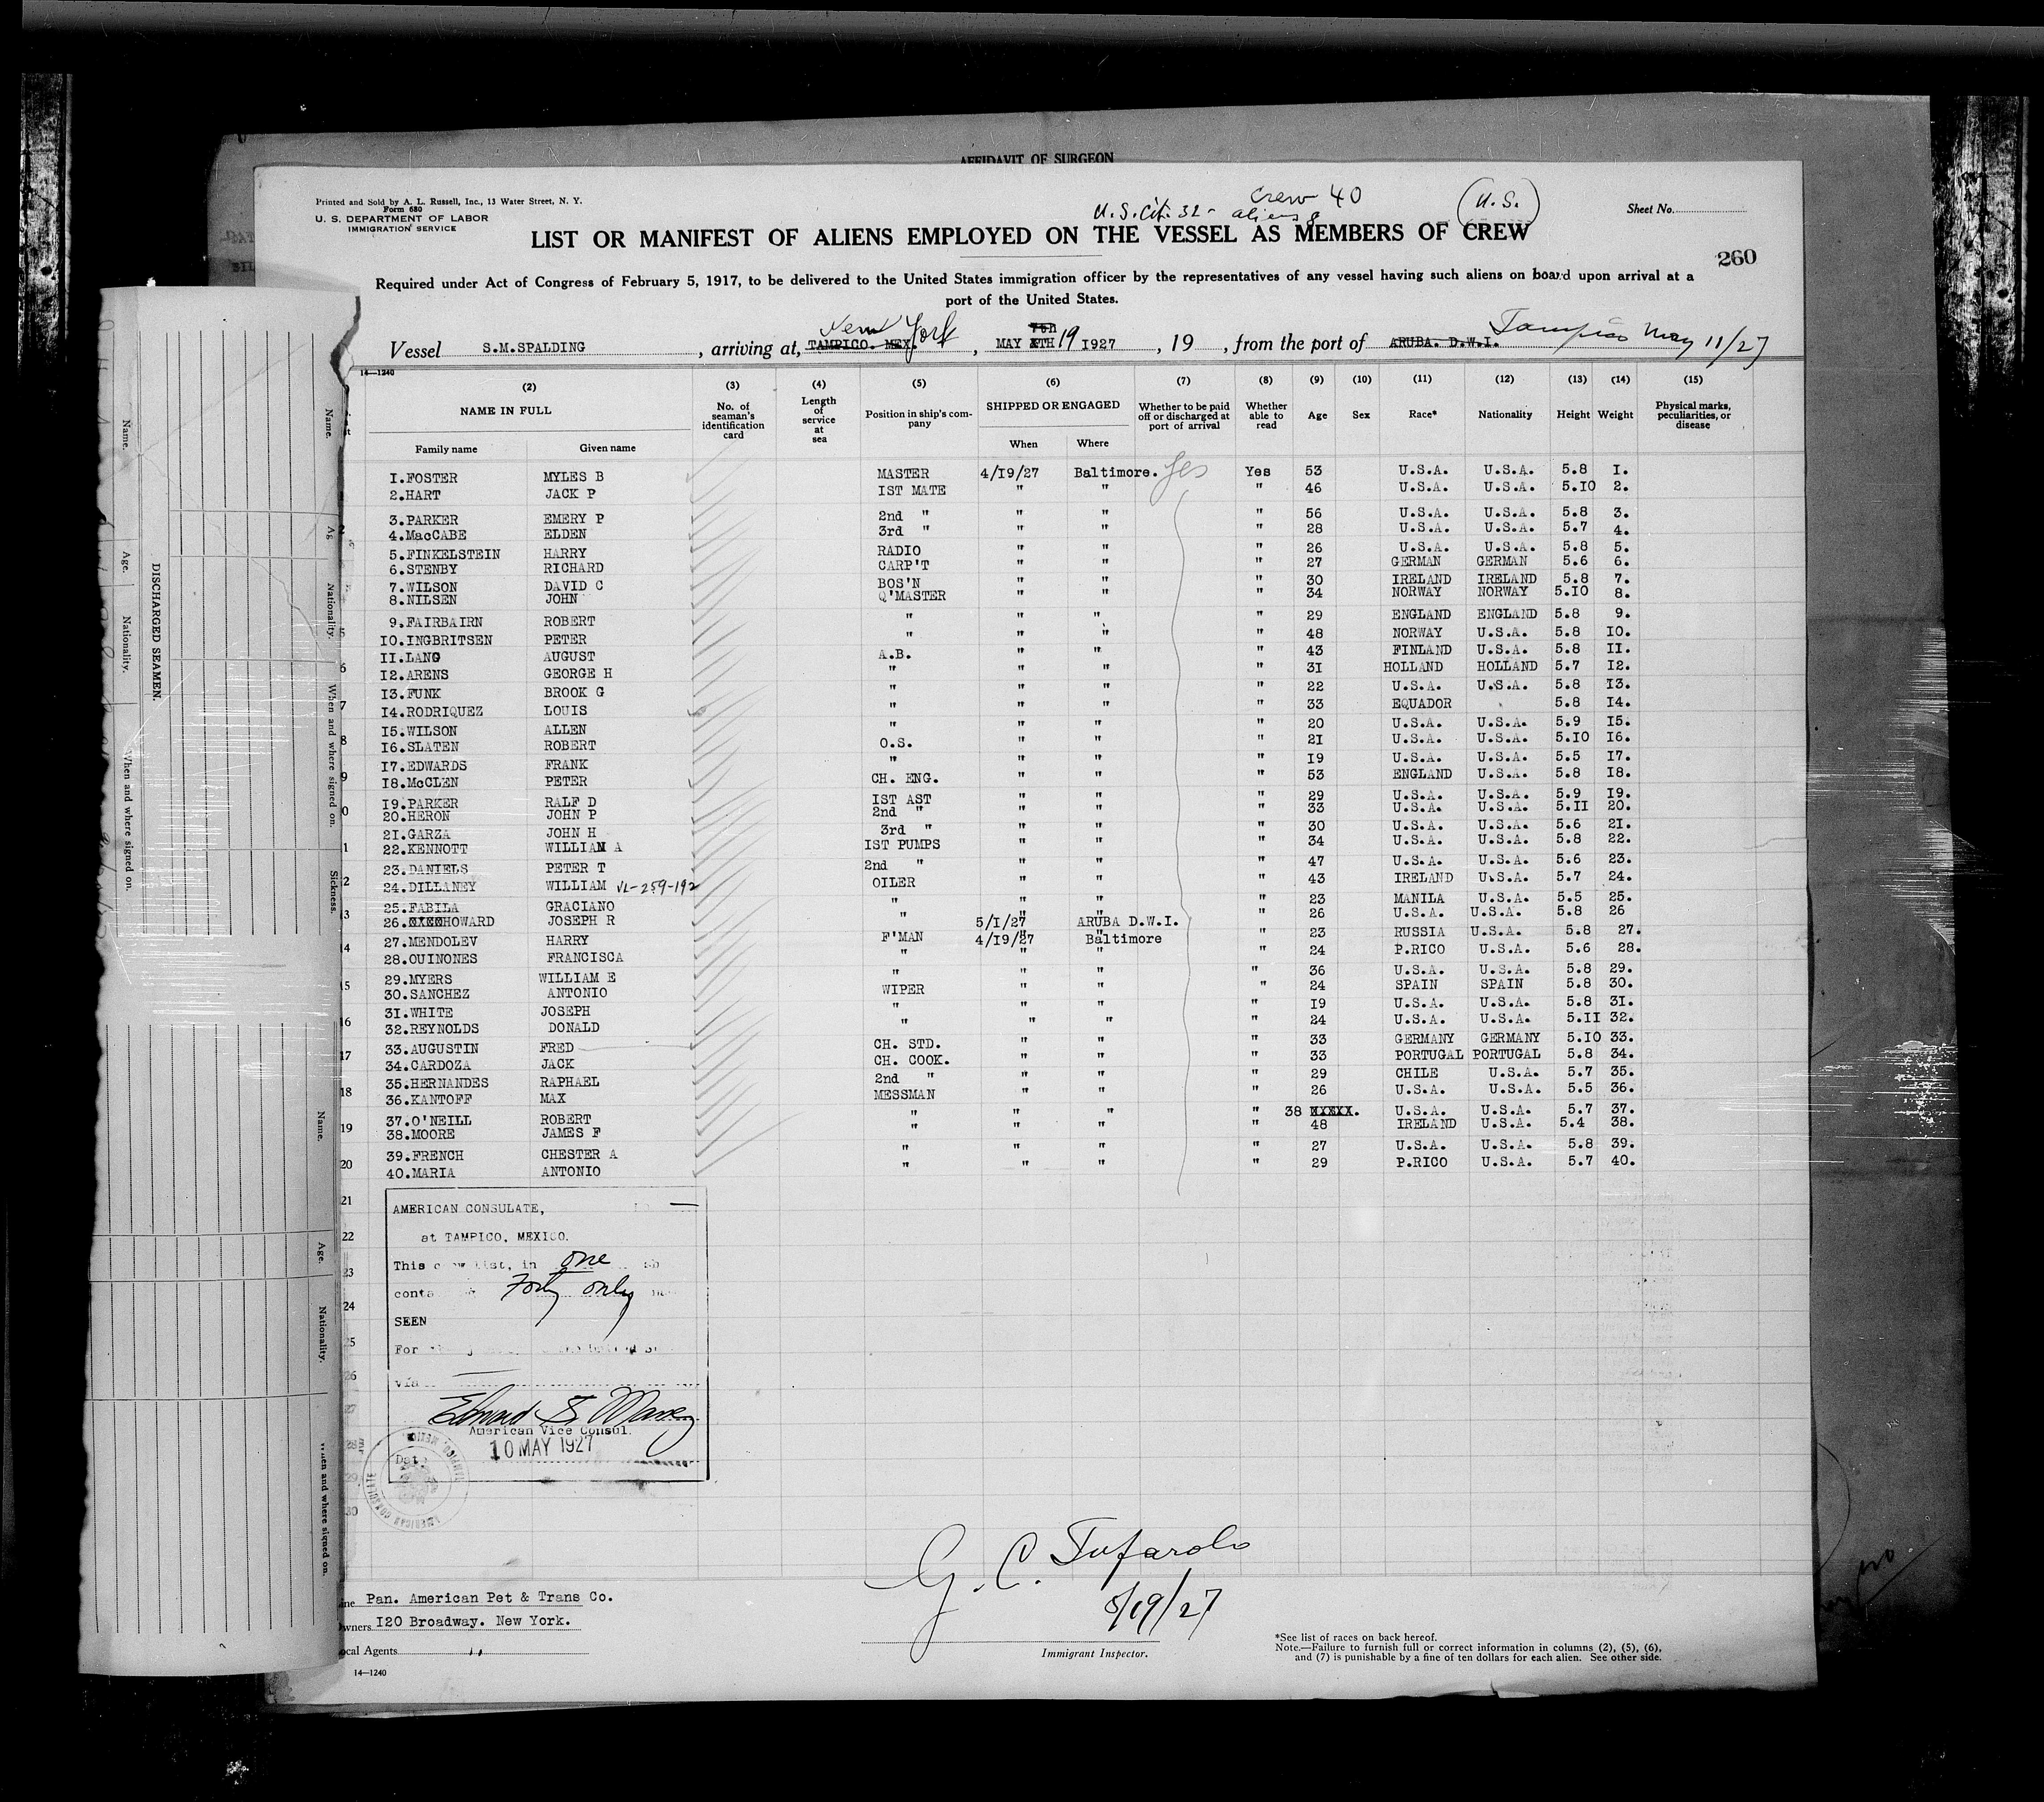 AFFIDAVIT OF SURGEON
Printed and Sold by A. L. Russell, Inc., 13 Water Street, N. Y.
Form 680
U. S. DEPARTMENT OF LABOR
IMMIGRATION SERVICE
Crew 40
U.S. Cit. 32 - aliens 8
(U.S.)
Sheet No.
LIST OR MANIFEST OF ALIENS EMPLOYED ON THE VESSEL AS MEMBERS OF CREW
260
Required under Act of Congress of February 5, 1917, to be delivered to the United States immigration officer by the representatives of any vessel having such aliens on board upon arrival at a
port of the United States.
Vessel S.M.SPALDING, arriving at, TAMPICO. MEX. New York, MAY 7th 19 1927, 19 , from the port of ARUBA. D.W.I. Tampico May 11/27
14—1240
(2) (3) (4) (5) (6) (7) (8) (9) (10) (11) (12) (13) (14) (15)
NAME IN FULL
Family name Given name
No. of seaman's identification card
Length of service at sea
Position in ship's company
SHIPPED OR ENGAGED
When Where
Whether to be paid off or discharged at port of arrival
Whether able to read
Age Sex Race* Nationality Height Weight
Physical marks, peculiarities, or disease
1.FOSTER MYLES B MASTER 4/19/27 Baltimore. Yes Yes 53 U.S.A. U.S.A. 5.8 1.
2.HART JACK P IST MATE " " " 46 U.S.A. U.S.A. 5.10 2.
3.PARKER EMERY P 2nd " " " " 56 U.S.A. U.S.A. 5.8 3.
4.MacCABE ELDEN 3rd " " " " 28 U.S.A. U.S.A. 5.7 4.
5.FINKELSTEIN HARRY RADIO " " " 26 U.S.A. U.S.A. 5.8 5.
6.STENBY RICHARD CARP'T " " " 27 GERMAN GERMAN 5.6 6.
7.WILSON DAVID C BOS'N " " " 30 IRELAND IRELAND 5.8 7.
8.NILSEN JOHN Q'MASTER " " " 34 NORWAY NORWAY 5.10 8.
9.FAIRBAIRN ROBERT " " " " 29 ENGLAND ENGLAND 5.8 9.
10.INGBRITSEN PETER " " " " 48 NORWAY U.S.A. 5.8 10.
11.LANG AUGUST A.B. " " " 43 FINLAND U.S.A. 5.8 11.
12.ARENS GEORGE H " " " " 31 HOLLAND HOLLAND 5.7 12.
13.FUNK BROOK G " " " " 22 U.S.A. U.S.A. 5.8 13.
14.RODRIQUEZ LOUIS " " " " 33 EQUADOR 5.8 14.
15.WILSON ALLEN " " " " 20 U.S.A. U.S.A. 5.9 15.
16.SLATEN ROBERT O.S. " " " 21 U.S.A. U.S.A. 5.10 16.
17.EDWARDS FRANK " " " " 19 U.S.A. U.S.A. 5.5 17.
18.McCLEN PETER CH. ENG. " " " 53 ENGLAND U.S.A. 5.8 18.
19.PARKER RALF D IST AST " " " 29 U.S.A. U.S.A. 5.9 19.
20.HERON JOHN P 2nd " " " " 33 U.S.A. U.S.A. 5.11 20.
21.GARZA JOHN H 3rd " " " " 30 U.S.A. U.S.A. 5.6 21.
22.KENNOTT WILLIAM A IST PUMPS " " " 34 U.S.A. U.S.A. 5.8 22.
23.DANIELS PETER T 2nd " " " " 47 U.S.A. U.S.A. 5.6 23.
24.DILLANEY WILLIAM VL-259-192 OILER " " " 43 IRELAND U.S.A. 5.7 24.
25.FABILA GRACIANO " " " " 23 MANILA U.S.A. 5.5 25.
26.HOWARD JOSEPH R " 5/1/27 ARUBA D.W.I. " 26 U.S.A. U.S.A. 5.8 26
27.MENDOLEV HARRY F'MAN 4/19/27 Baltimore " 23 RUSSIA U.S.A. 5.8 27.
28.OUINONES FRANCISCA " " " " 24 P.RICO U.S.A. 5.6 28.
29.MYERS WILLIAM E " " " " 36 U.S.A. U.S.A. 5.8 29.
30.SANCHEZ ANTONIO WIPER " " " 24 SPAIN SPAIN 5.8 30.
31.WHITE JOSEPH " " " " 19 U.S.A. U.S.A. 5.8 31.
32.REYNOLDS DONALD " " " " 24 U.S.A. U.S.A. 5.11 32.
33.AUGUSTIN FRED CH. STD. " " " 33 GERMANY GERMANY 5.10 33.
34.CARDOZA JACK CH. COOK. " " " 33 PORTUGAL PORTUGAL 5.8 34.
35.HERNANDES RAPHAEL 2nd " " " " 29 CHILE U.S.A. 5.7 35.
36.KANTOFF MAX MESSMAN " " " 26 U.S.A. U.S.A. 5.5 36.
37.O'NEILL ROBERT " " " " 38 XXXXX. U.S.A. U.S.A. 5.7 37.
38.MOORE JAMES F " " " " 48 IRELAND U.S.A. 5.4 38.
39.FRENCH CHESTER A " " " " 27 U.S.A. U.S.A. 5.8 39.
40.MARIA ANTONIO " " " " 29 P.RICO U.S.A. 5.7 40.
AMERICAN CONSULATE,
at TAMPICO, MEXICO.
This crew list, in one
Forty only
SEEN
For
via
American Vice Consul.
10 MAY 1927
Date
AMERICAN CONSULATE TAMPICO, MEXICO
G. C. Tufarolo
5/19/27
Immigrant Inspector.
Pan. American Pet & Trans Co.
Owners 120 Broadway. New York.
Local Agents "
14—1240
*See list of races on back hereof.
Note.—Failure to furnish full or correct information in columns (2), (5), (6),
and (7) is punishable by a fine of ten dollars for each alien. See other side.
DISCHARGED SEAMEN.
Name. Age. Nationality. When and where signed on.
Name. Ag Nationality. When and where signed on. Sickness.
Name. Age. Nationality. When and where signed on.